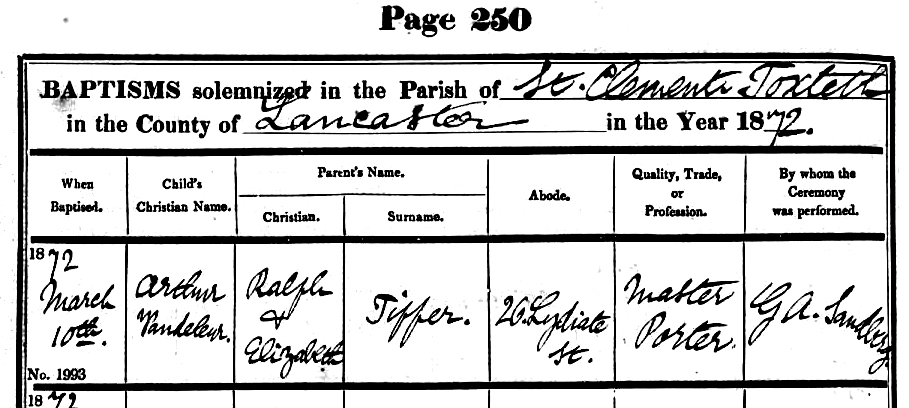 Page 250
BAPTISMS solemnized in the Parish of St. Clements Toxteth
in the County of Lancaster in the Year 1872.
When Baptised.
Child's Christian Name.
Parent's Name.
Christian.
Surname.
Abode.
Quality, Trade, or Profession.
By whom the Ceremony was performed.
1872
March
10th.
No. 1993
Arthur
Vandeleur.
Ralph
&
Elizabeth
Tipper.
26 Lydiate
St.
Master
Porter
G A. Sandberg
1872